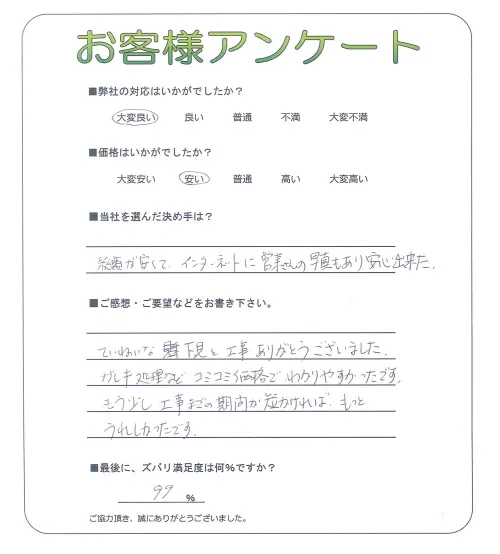 お客様アンケート
■弊社の対応はいかがでしたか？
大変良い 良い 普通 不満 大変不満
■価格はいかがでしたか？
大変安い 安い 普通 高い 大変高い
■当社を選んだ決め手は？
総額が安くて、インターネットに営業さんの写真もあり安心出来た。
■ご感想・ご要望などをお書き下さい。
ていねいな 下見と工事ありがとうございました。
ガレキ処理など コミコミ価格でわかりやすかったです。
もう少し工事までの期間が短かければ、もっと
うれしかったです。
■最後に、ズバリ満足度は何％ですか？
99 ％
ご協力頂き、誠にありがとうございました。